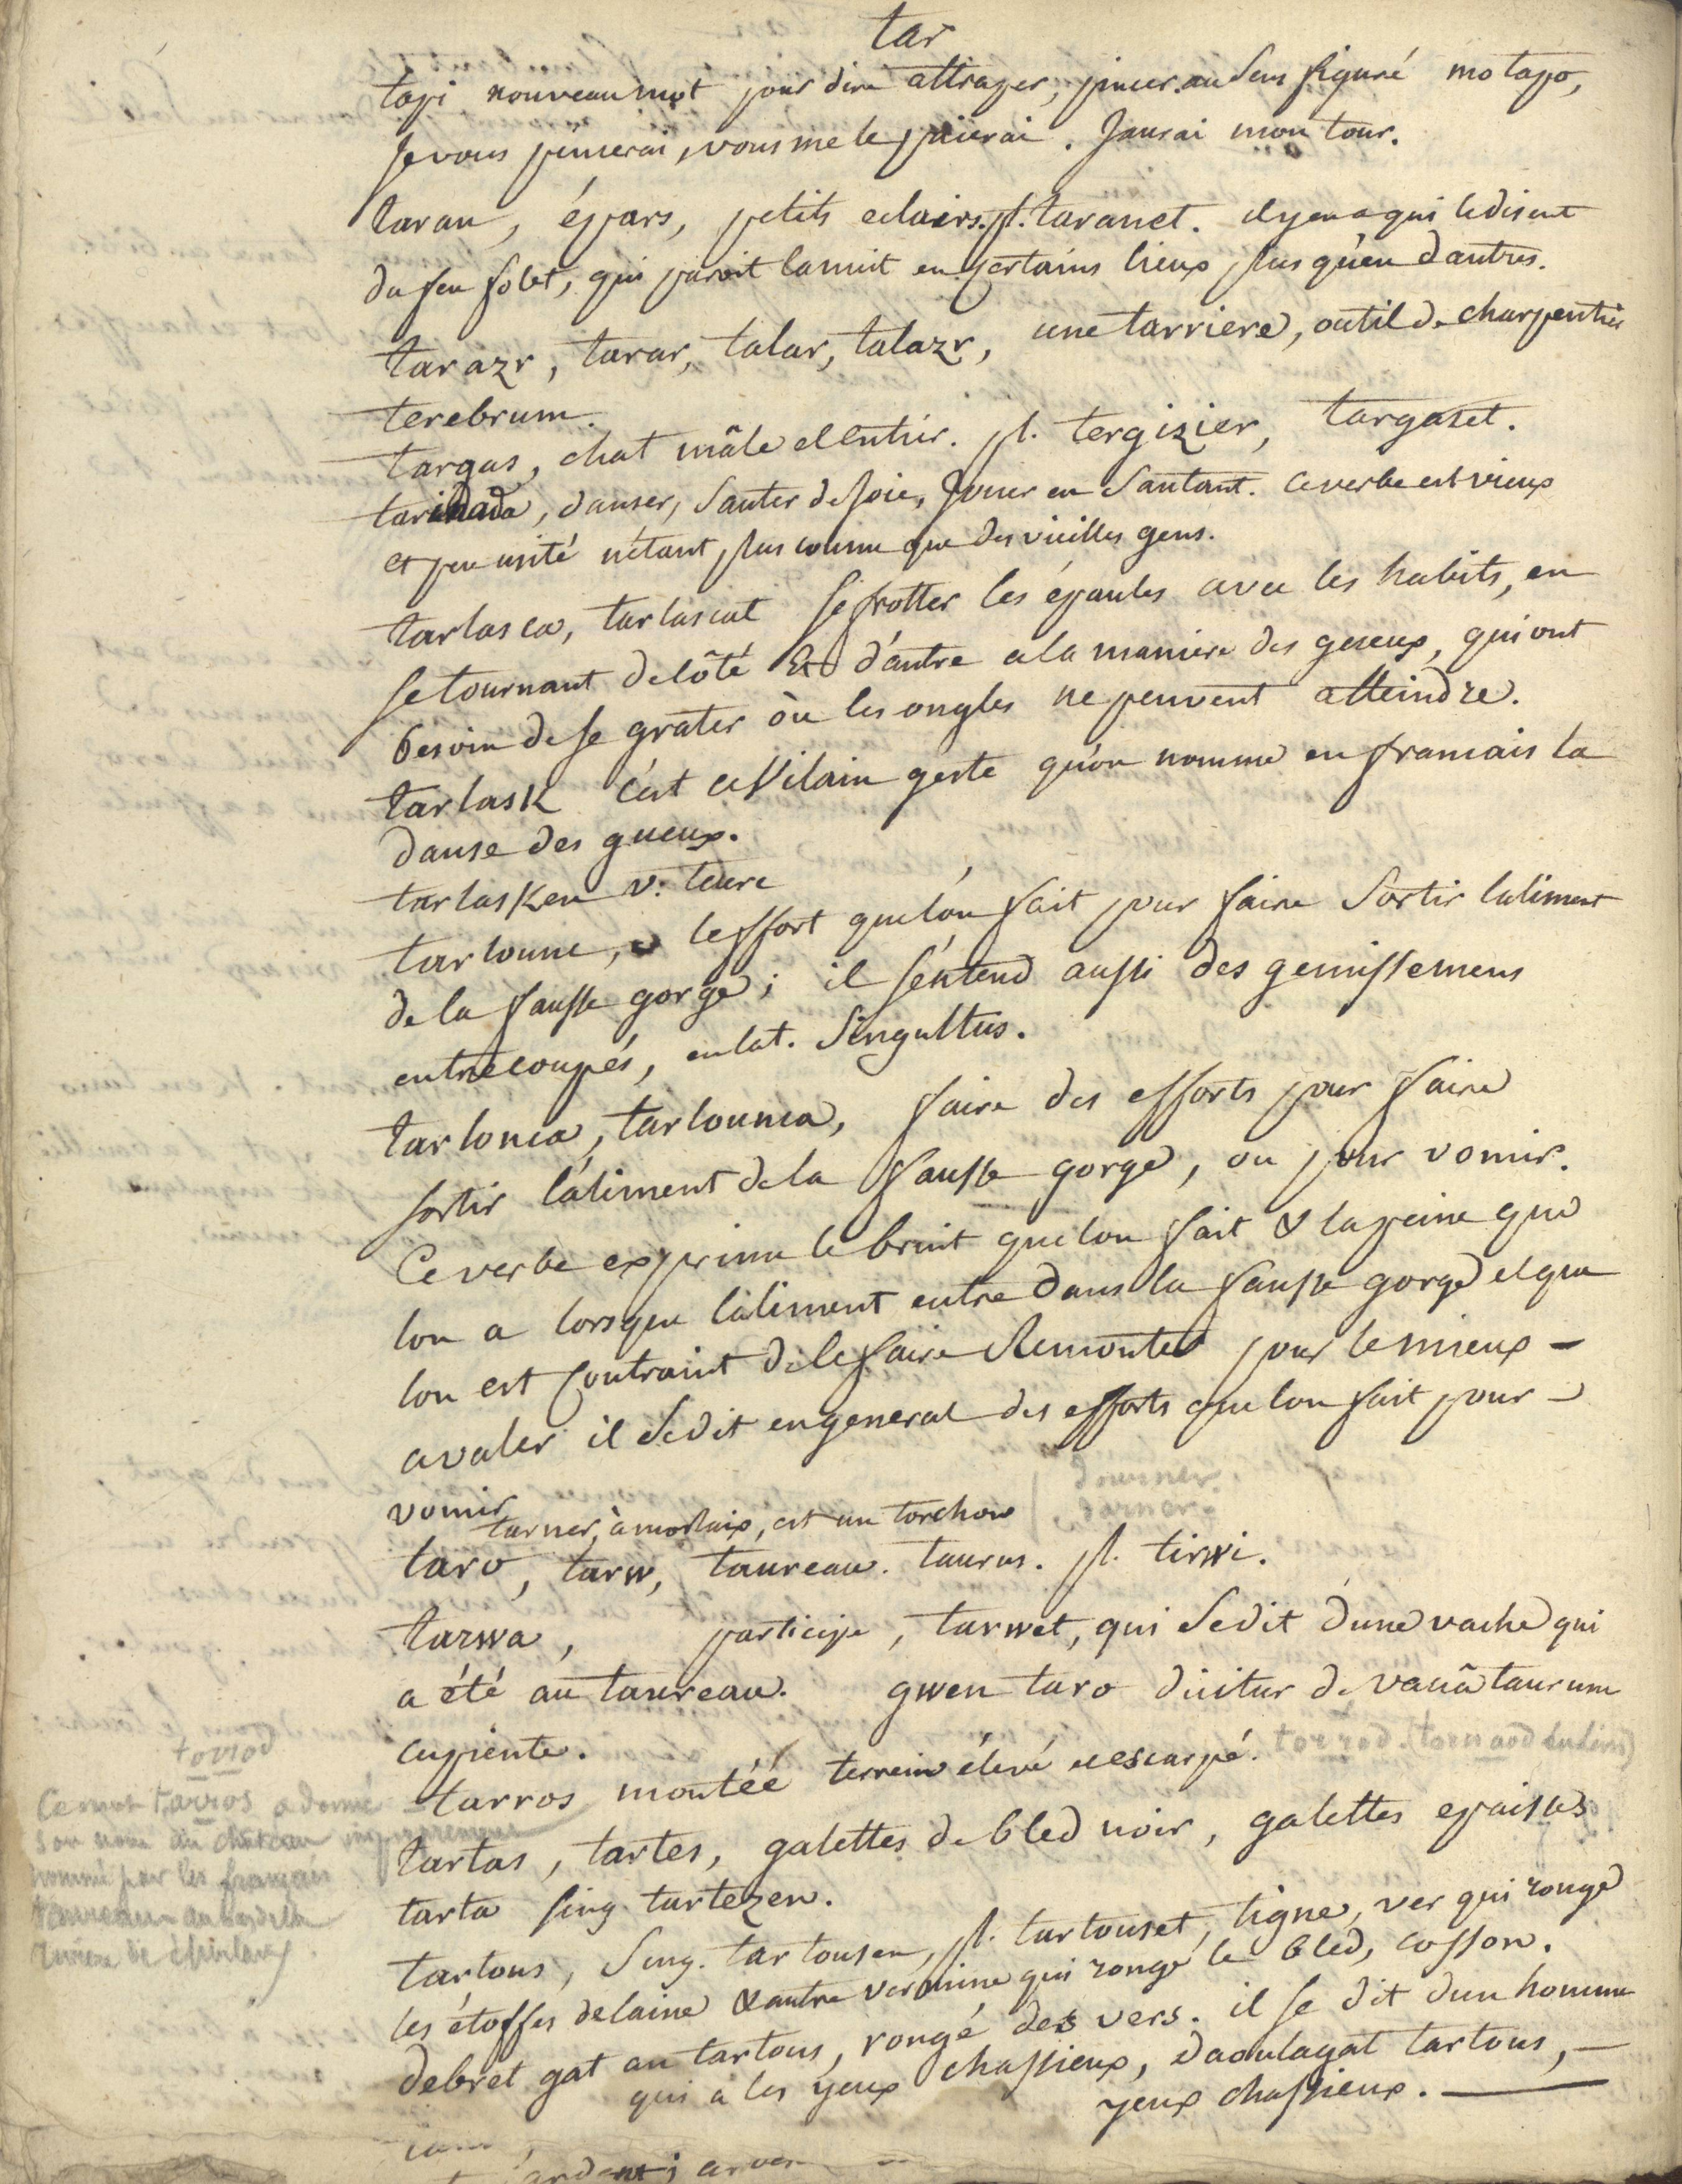 tar
tapi nouveau mot pour dire attraper, pincer au sens figuré mo tapo,
je vous pincerai, vous me le paierai. Jaurai mon tour.
taran, épars, petits eclairs. pl. taranet. il y en a qui le disent
du feu folet, qui paroit la nuit en certains lieux plus qu'en d'autres.
tarazr, tarar, talar, talazr, une tarriere, outil de charpentier
terebrum.
targas, chat mâle et entier. pl. tergizier, targaset.
, danser, sauter de joie, Jouer en sautant. ce verbe est vieux
et peu usité n'étant plus connu que des vieilles gens.
tarlasca, tarlascat se frotter les épaules avec les habits, en
se tournant de côté et d'autre a la maniere des gueux, qui ont
besoin de se grater où les ongles ne peuvent atteindre.
tarlask c'est ce vilain geste qu'on nomme en francais la
danse des gueux.
tarlasken v. teure
tarlounc, leffort que l'on fait pour faire sortir laliment
de la fausse gorge; il s'entend aussi des gemissemens
entrecoupés, en lat. Singultus.
tarlonca, tarlounca, faire des efforts pour faire
sortir l'aliment de la fausse gorge, ou pour vomir.
Ce verbe exprime le bruit que lon fait & la peine que
lon a lorsque l'aliment entre dans la fausse gorge et que
lon est contraint de le faire Remonter pour le mieux -
avaler il se dit en general des efforts que lon fait pour -
vomir
tarner, à morlaix, est un torchon dourner. darner.
taro, tarw, taureau. taurus. pl. tirwi.
tarwa, participe, tarwet, qui se dit d'une vache qui
a été au taureau. gwen taro dicitur de vaccâ taurum
cupiente.
tarros montée terrein élevé et escarpé. torrod.
torrod
Ce mot tarros a donné
son nom au chateau improprement
nommé par les français
taureau au bas de la
riviere de
tartas, tartes, galettes de bled noir, galettes epaisses
tarta sing. tartezen.
tartous, sing. tartousen, pl. tartouset, tigne, ver qui ronge
les étoffes de laine & autre vermine qui ronge le bled, cosson.
debret gat an tartous, rongé des vers. il se dit dun homme
qui a les yeux chassieux, daoulagat tartous, -
yeux chassieux.